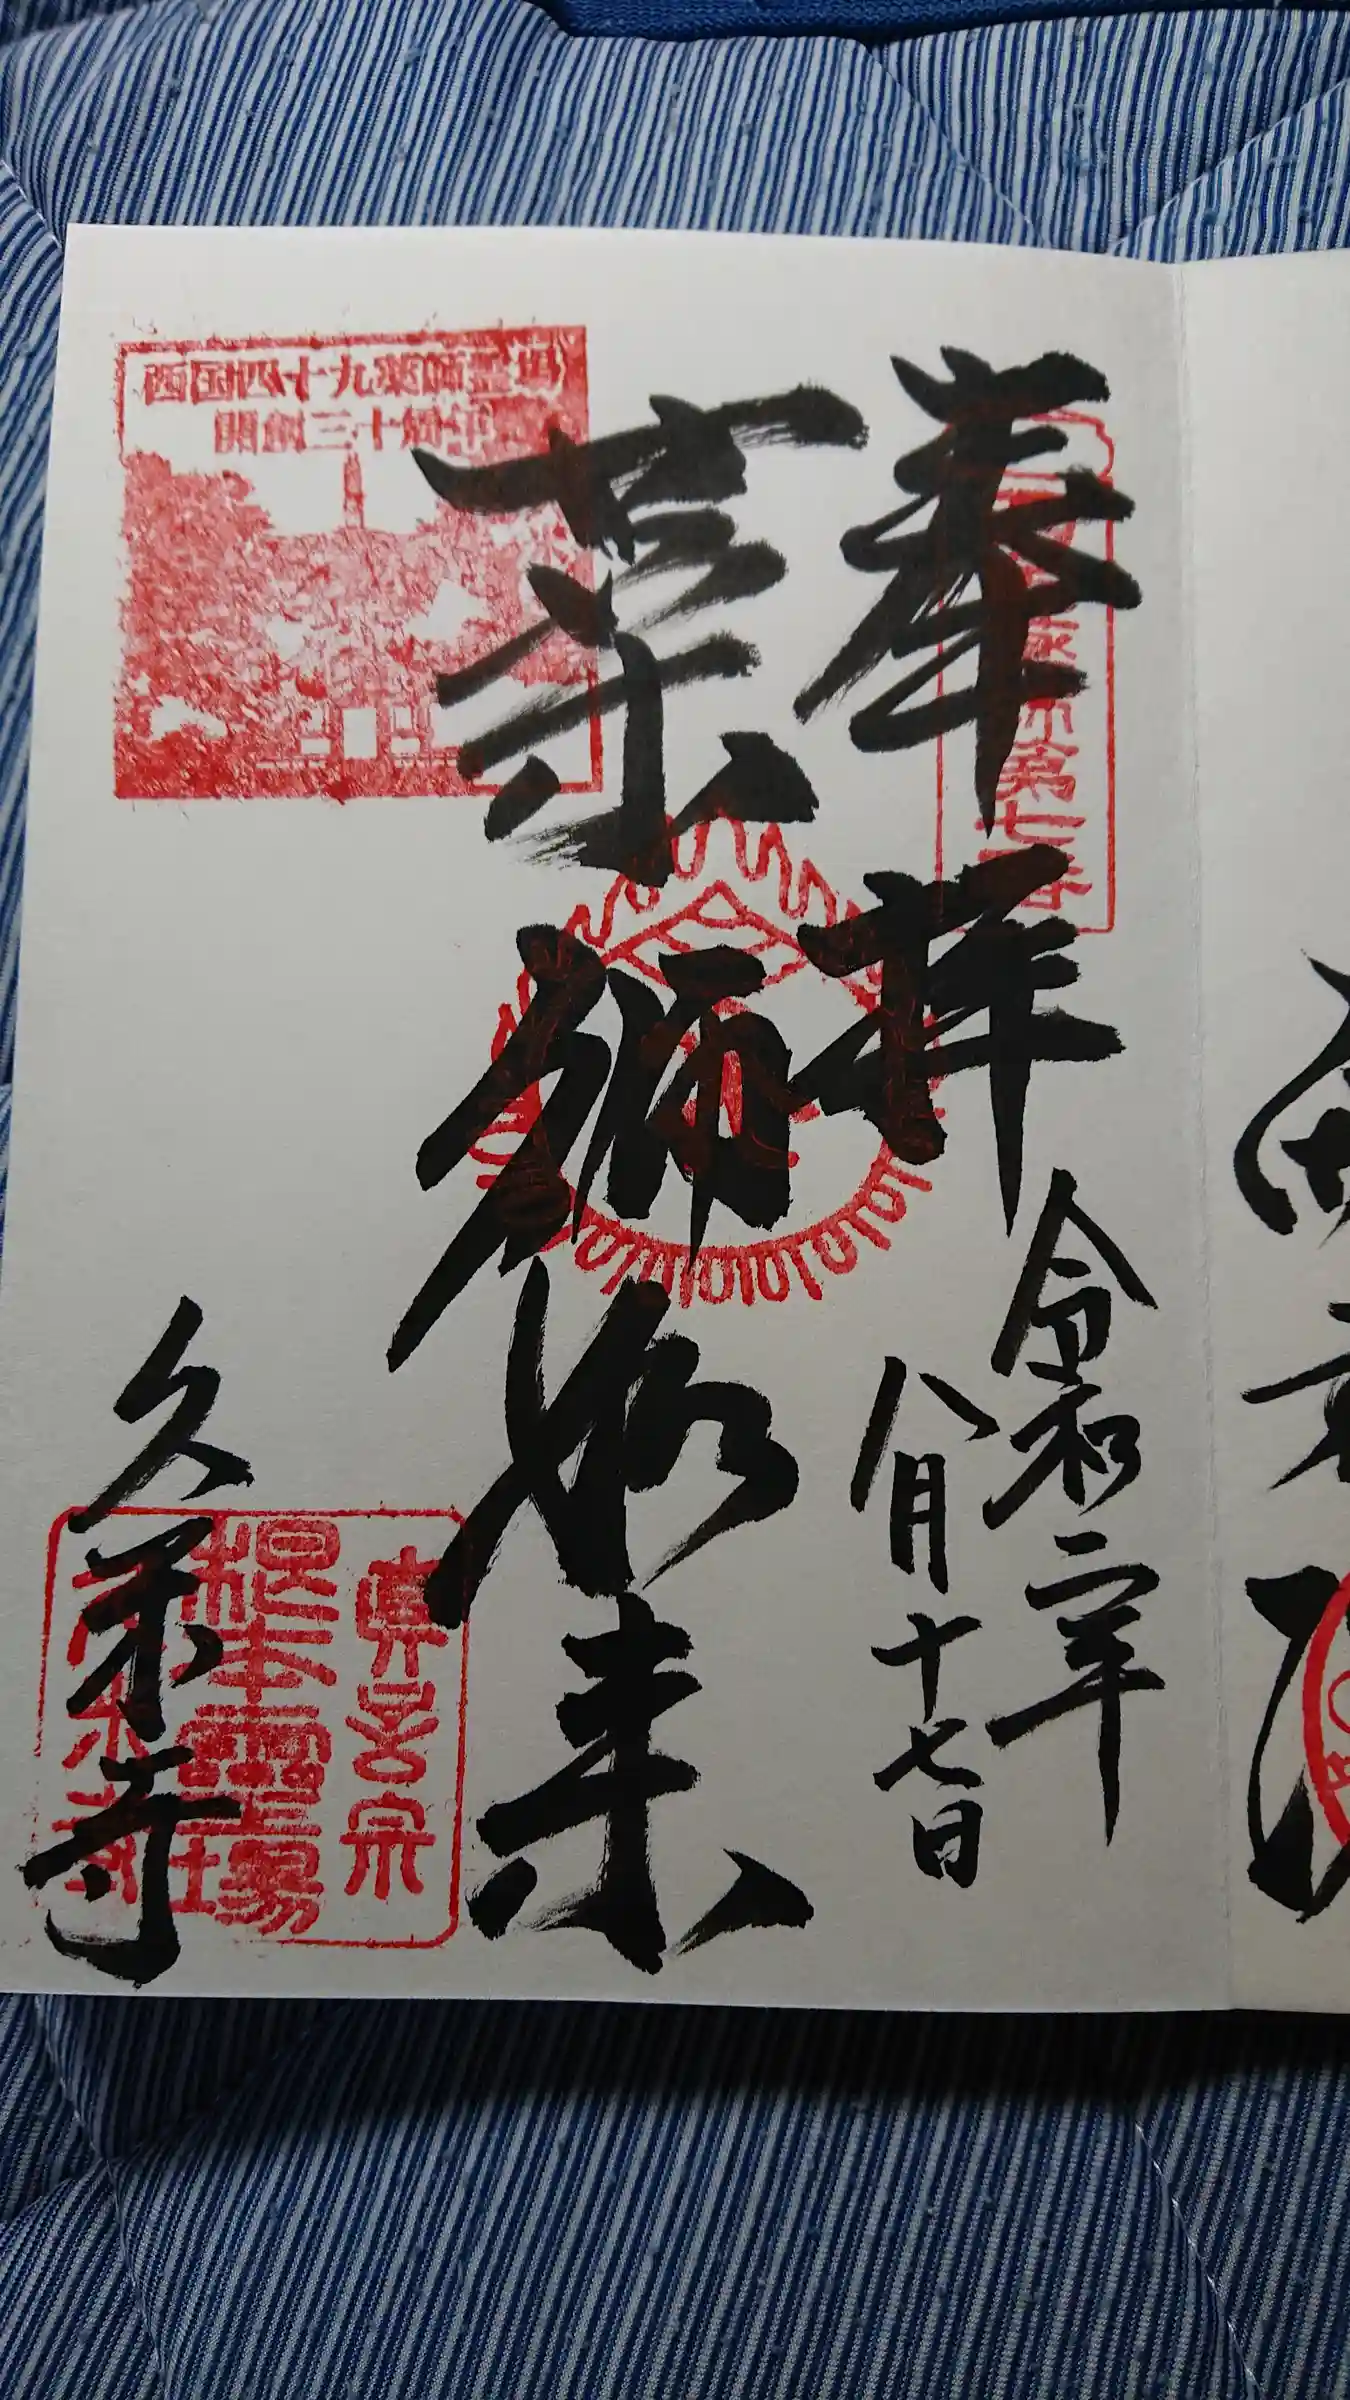 奉拝
令和二年
八月十七日
薬師如来
西国四十九薬師霊場
開創三十周年
眞言宗
根本霊場
久米寺